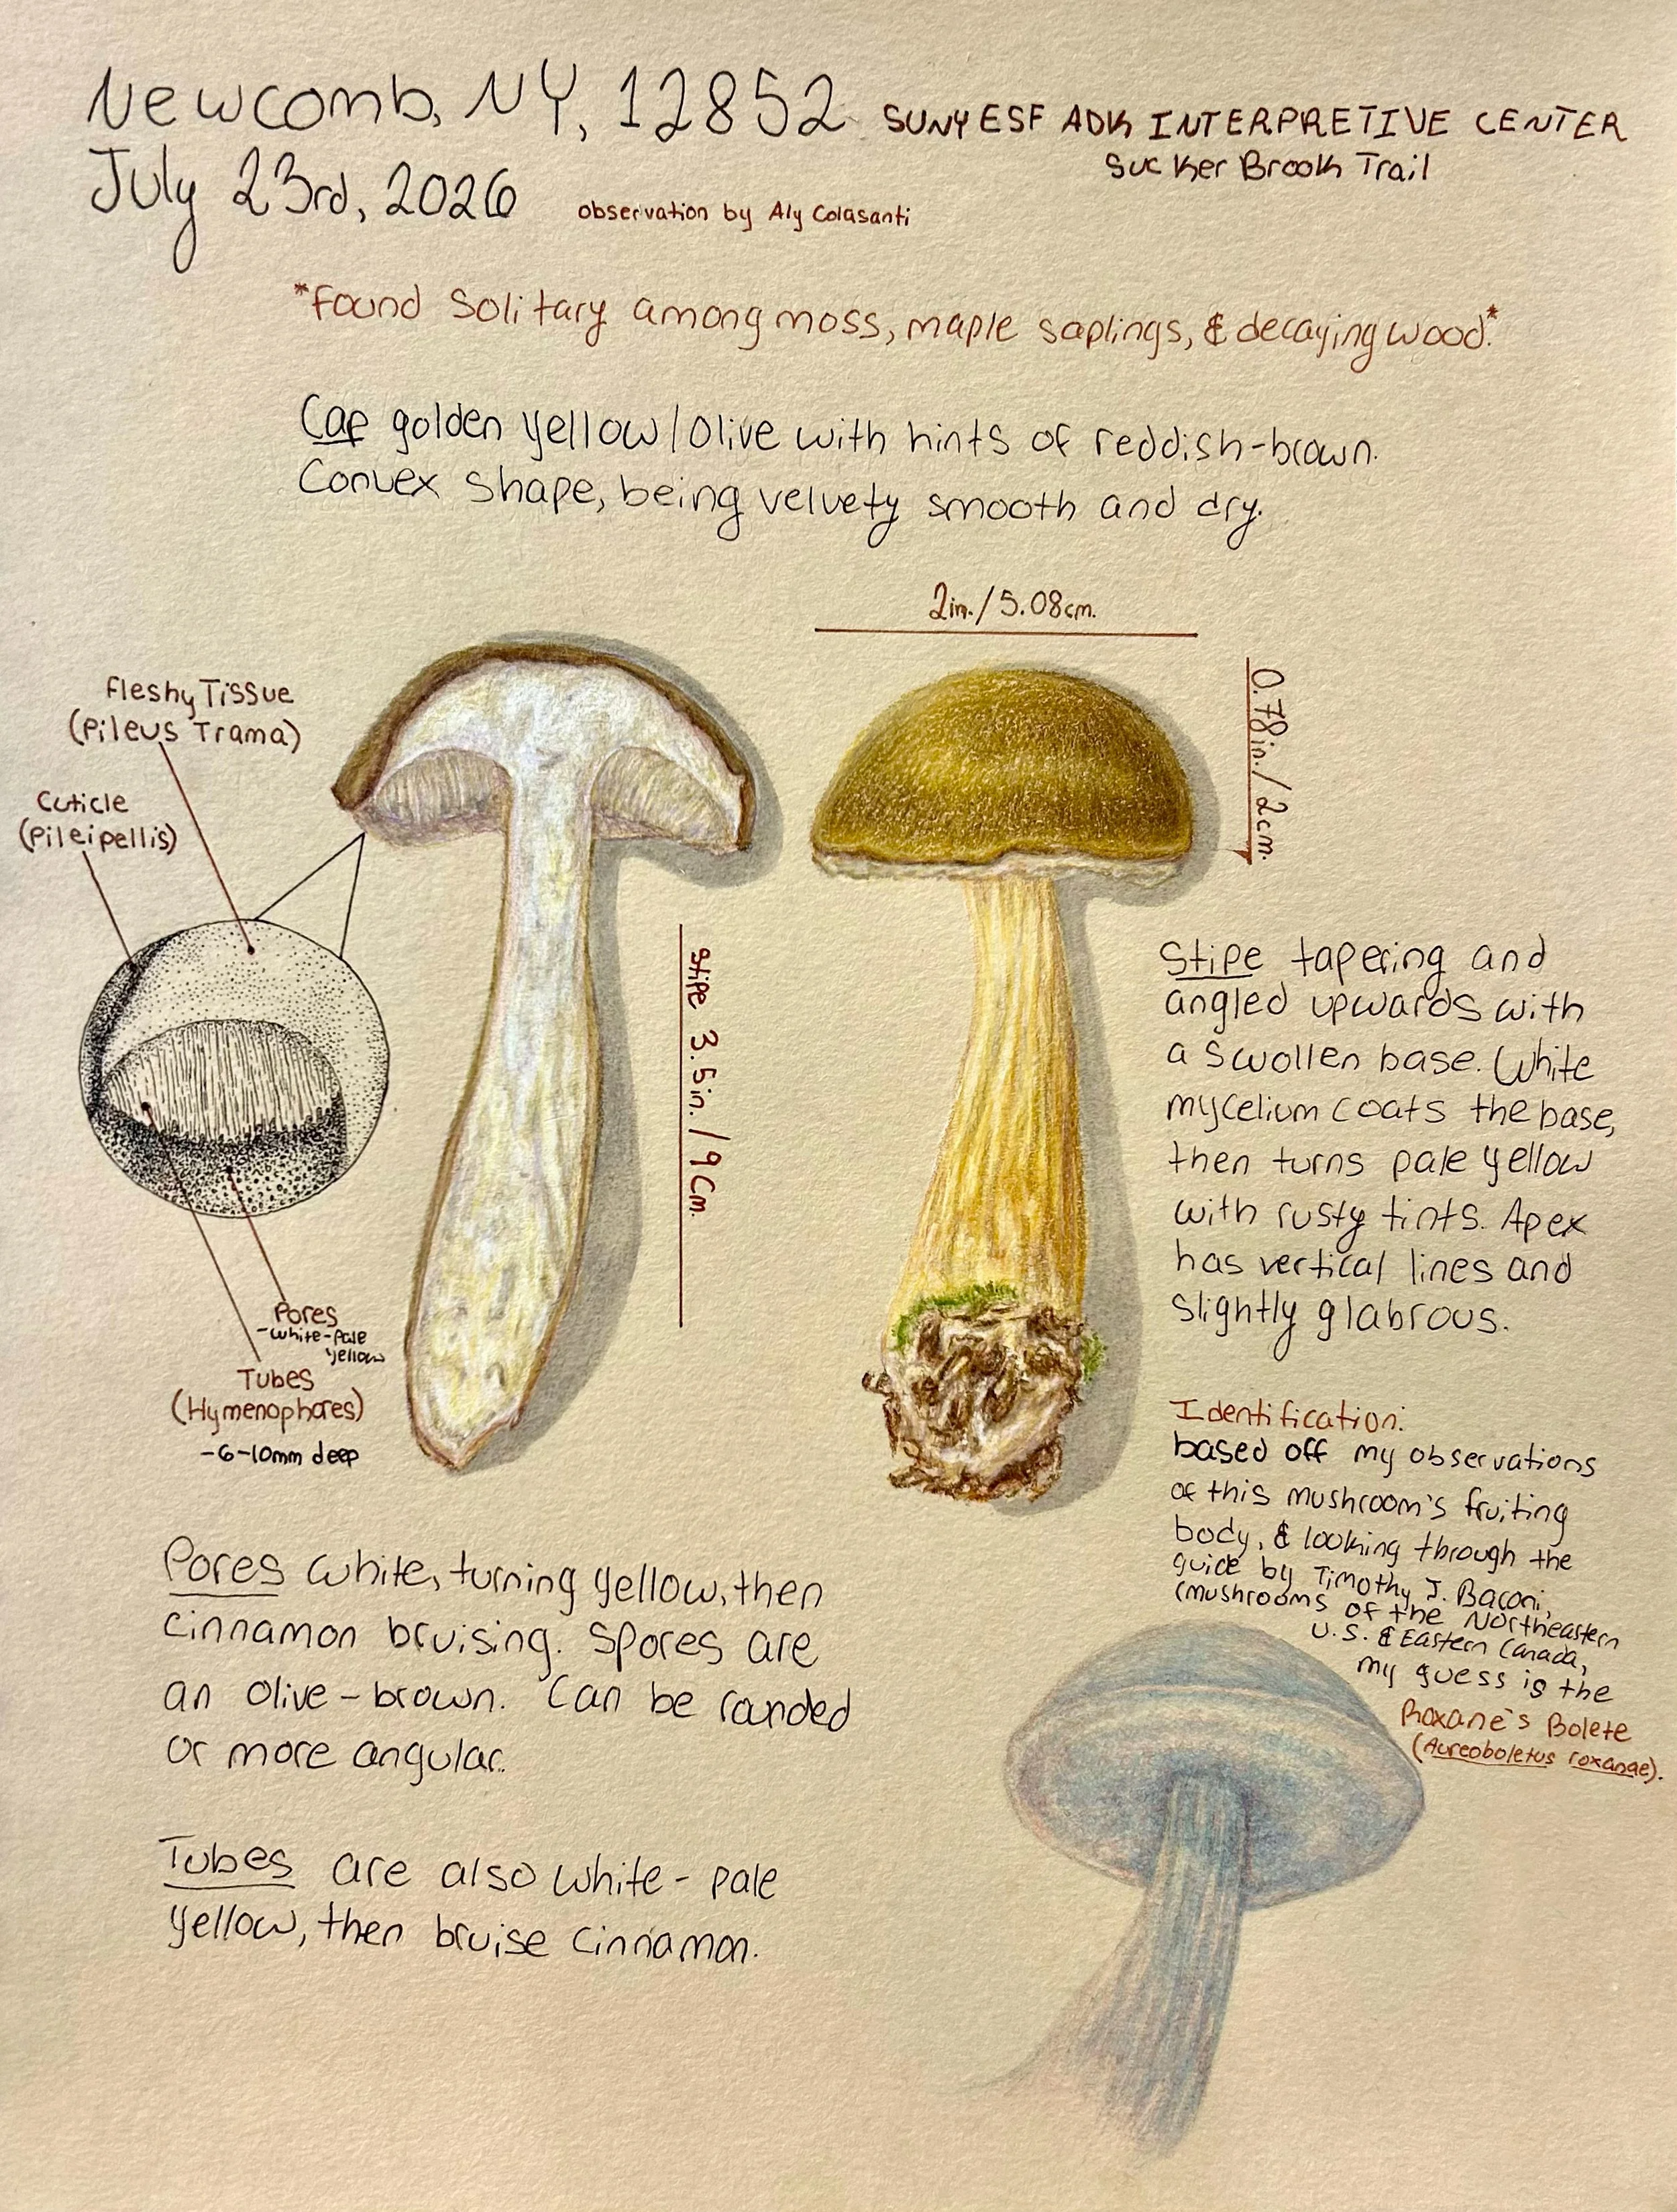 Newcomb, NY, 12852 SUNY ESF ADK INTERPRETIVE CENTER
Sucker Brook Trail
July 23rd, 2026 observation by Aly Colasanti
*Found Solitary among moss, maple saplings, & decaying wood.*
Cap golden yellow/Olive with hints of reddish-brown.
Convex shape, being velvety smooth and dry.
2in./5.08cm.
0.78in./2cm.
Fleshy Tissue
(Pileus Trama)
Cuticle
(Pileipellis)
Stipe 3.5in./9cm.
Pores
-white-pale
yellow
Tubes
(Hymenophores)
-6-10mm deep
Stipe tapering and
angled upwards with
a swollen base. White
mycelium coats the base,
then turns pale yellow
with rusty tints. Apex
has vertical lines and
slightly glabrous.
Identification:
based off my observations
of this mushroom's fruiting
body, & looking through the
guide by Timothy J. Baroni,
(mushrooms of the Northeastern
U.S. & Eastern Canada,
my guess is the
Roxane's Bolete
(Aureoboletus roxanae).
Pores white, turning yellow, then
cinnamon bruising. Spores are
an olive-brown. Can be rounded
or more angular.
Tubes are also white-pale
yellow, then bruise cinnamon.